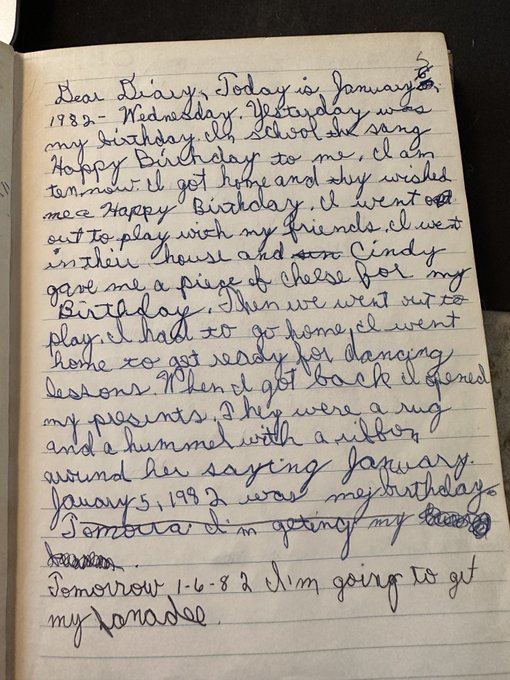 Dear Diary, Today is January 5
6,
1982 - Wednesday. Yesterday was
my birthday. In school the sang
Happy Birthday to me. I am
ten now. I got home and they wished
me a Happy Birthday. I went
out to play with my friends. I went
in their house and Cindy
gave me a piece of cheese for my
Birthday. Then we went out to
play. I had to go home. I went
home to got ready for dancing
lessons. When I got back I opened
my presints. They were a rug
and a hummel with a ribbon
around her saying January.
Jauary 5, 1982 was my birthday.
Tomorra I'm geting my
Tomorrow, 1-6-82 I'm going to get
my